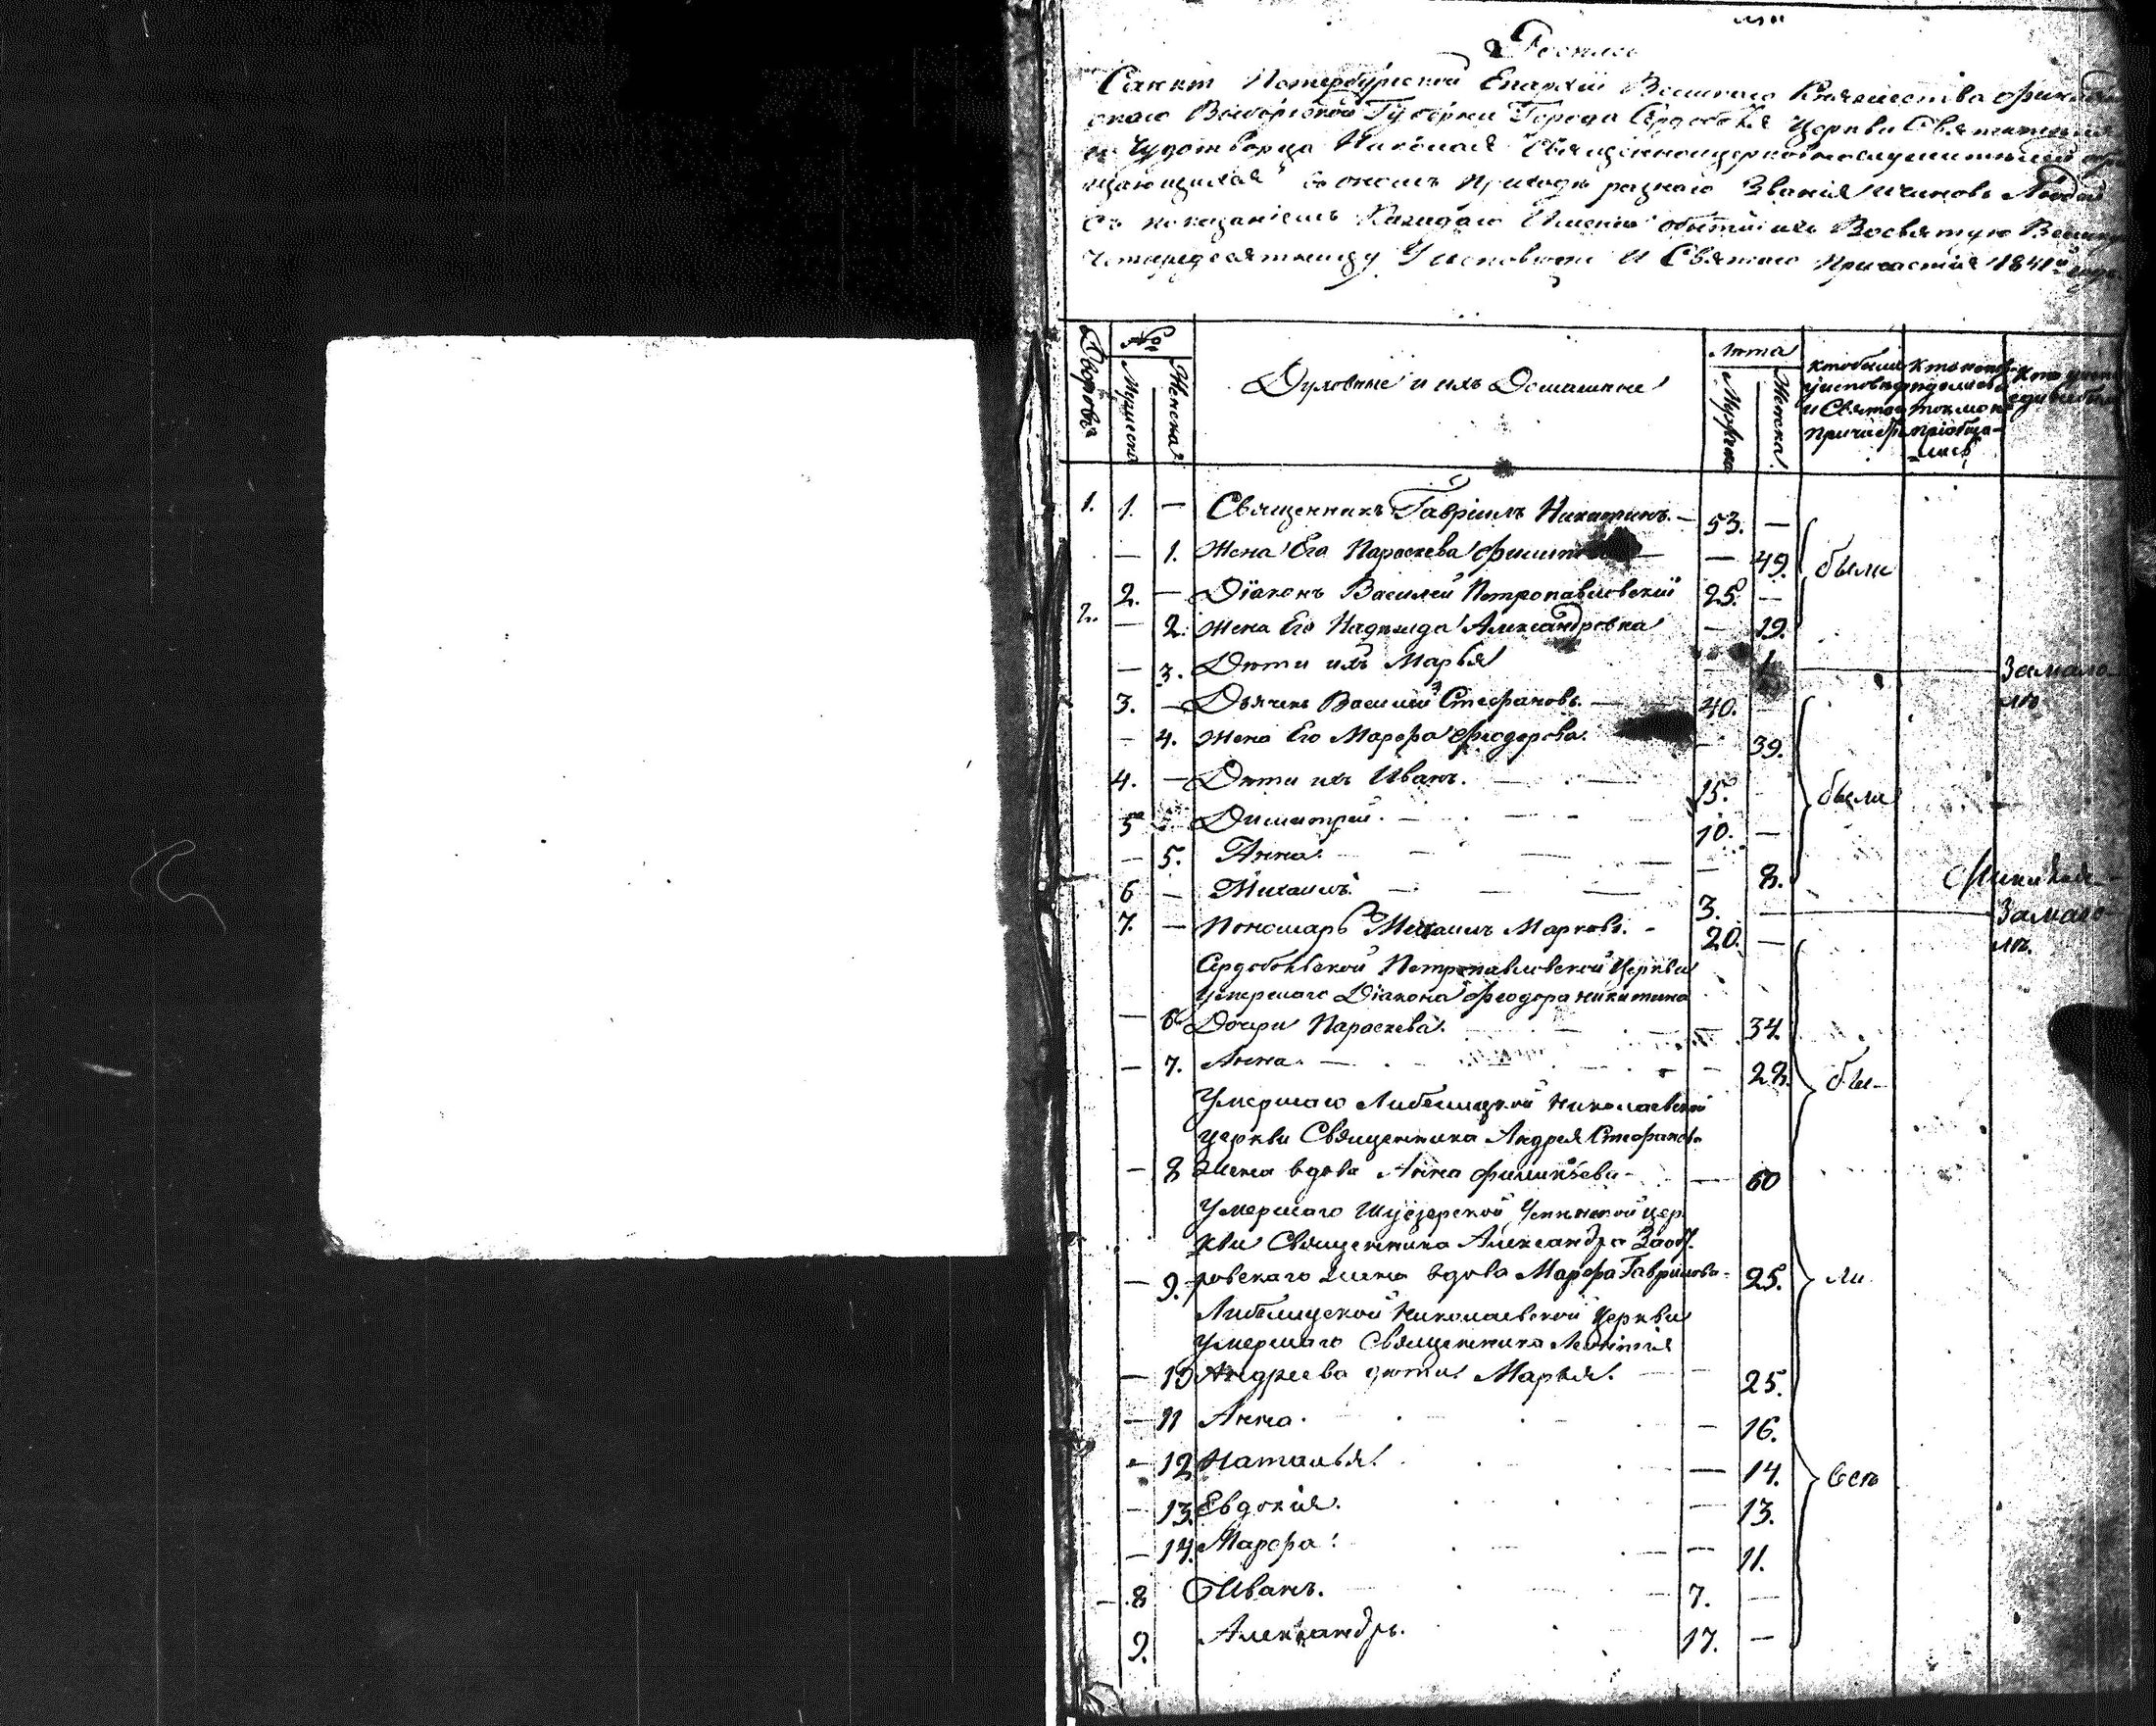 Роспись
Санкт Петербургской Епархіи Великаго Княжества Финлян
скаго Выборгской Губерніи Города Сердоболя Церкви Святителя
и Чудотворца Николая Священноцерковнослужителей обре
тающихся въ ономъ Приходѣ разнаго Званія и чиновъ Людей
Съ показаніемъ Каждаго Имени бытіи ихъ Восвятую Великую
Четыредесятницу У исповѣди и Святаго Причастія 1841го года
Дворовыя
№
Мужеска
Женска
Духовные и ихъ Домашніе
Лѣта
Мужеска
Женска
Кто были
у исповѣди
и Святаго
Причастія
1. 1. — Священникъ Гавріилъ Никитинъ. — 53. —
— 1. Жена Его Параскева — 49. были
2. 2. — Діаконъ Василей Петропавловскій 25. —
— 2. Жена Его Надежда Александровна — 19.
— 3. Дѣти ихъ Марья — 1. Замало
лѣ
3. — Дьячекъ Василій Стефановъ. 40. —
— 4. Жена Его Марфа Феодорова. — 39.
4. — Дѣти ихъ Иванъ. 15. были
5 Димитрій. 10. —
— 5. Анна. — 8.
6 — Михаилъ. 3. — Замало
лѣ.
7. — Пономарь Михаилъ Марковъ. 20. —
Сердобольской Петропавловской Церкви
умершаго Діакона Феодора Никитина
— 6 Дочери Параскева. — 34.
— 7. Анна. — 28. бы-
Умершаго Либелицкой Николаевской
Церкви Священника Андрея Стефанова
— 8 Жена вдова Анна — 60
Умершаго Шуезерской Церкви
Священника Александра Заоз
ровскаго
— 9. жена вдова Марфа Гаврилова 25. ли
Либелицкой Николаевской Церкви
Умершаго Священника Леонтія
— 10 Андреева дѣти Марья. — 25.
— 11 Анна. — 16.
— 12 Наталья. — 14. всѣ
— 13. Евдокія. — 13.
— 14. Марфа. — 11.
— 8 Иванъ. 7. —
9. Александръ. 17. —